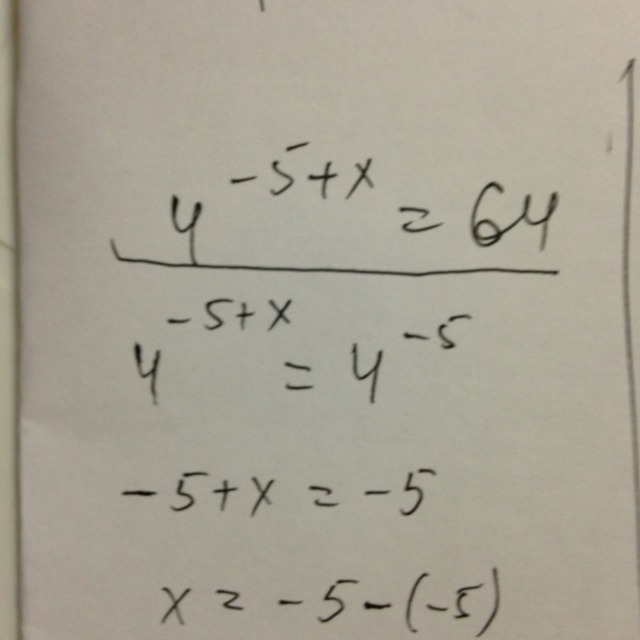 4^{-5+x} = 64
4^{-5+x} = 4^{-5}
-5+x = -5
x = -5-(-5)